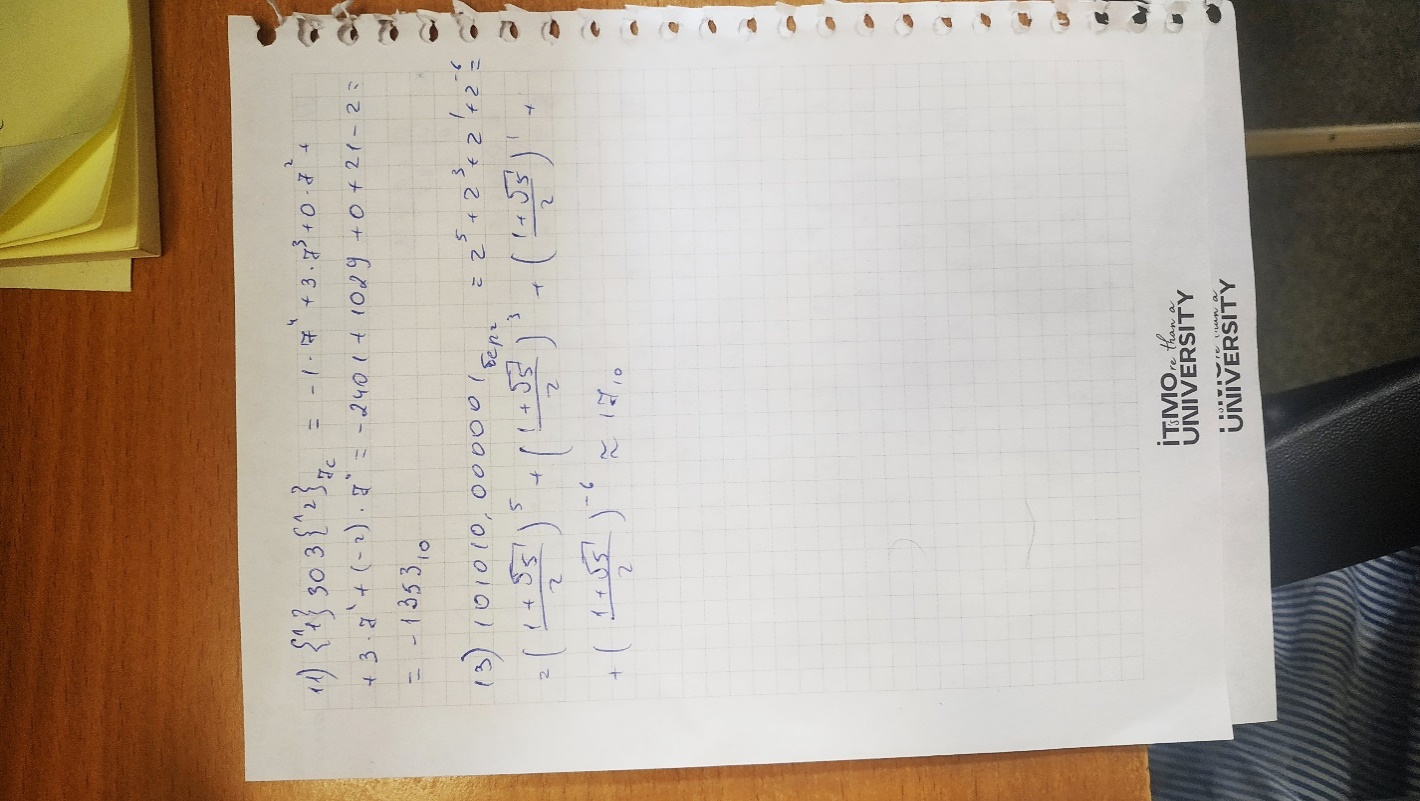 11) {^1}303{^2}₇c = -1·7⁴ + 3·7³ + 0·7² +
+ 3·7¹ + (-2)·7⁰ = -2401 + 1029 + 0 + 21 - 2 =
= -1353₁₀
13) 101010,000001берг = z⁵ + z³ + z¹ + z⁻⁶ =
= ((1+√5)/2)⁵ + ((1+√5)/2)³ + ((1+√5)/2)¹ +
+ ((1+√5)/2)⁻⁶ ≈ 17₁₀
ITsMOre than a
UNIVERSITY
UNIVERSITY